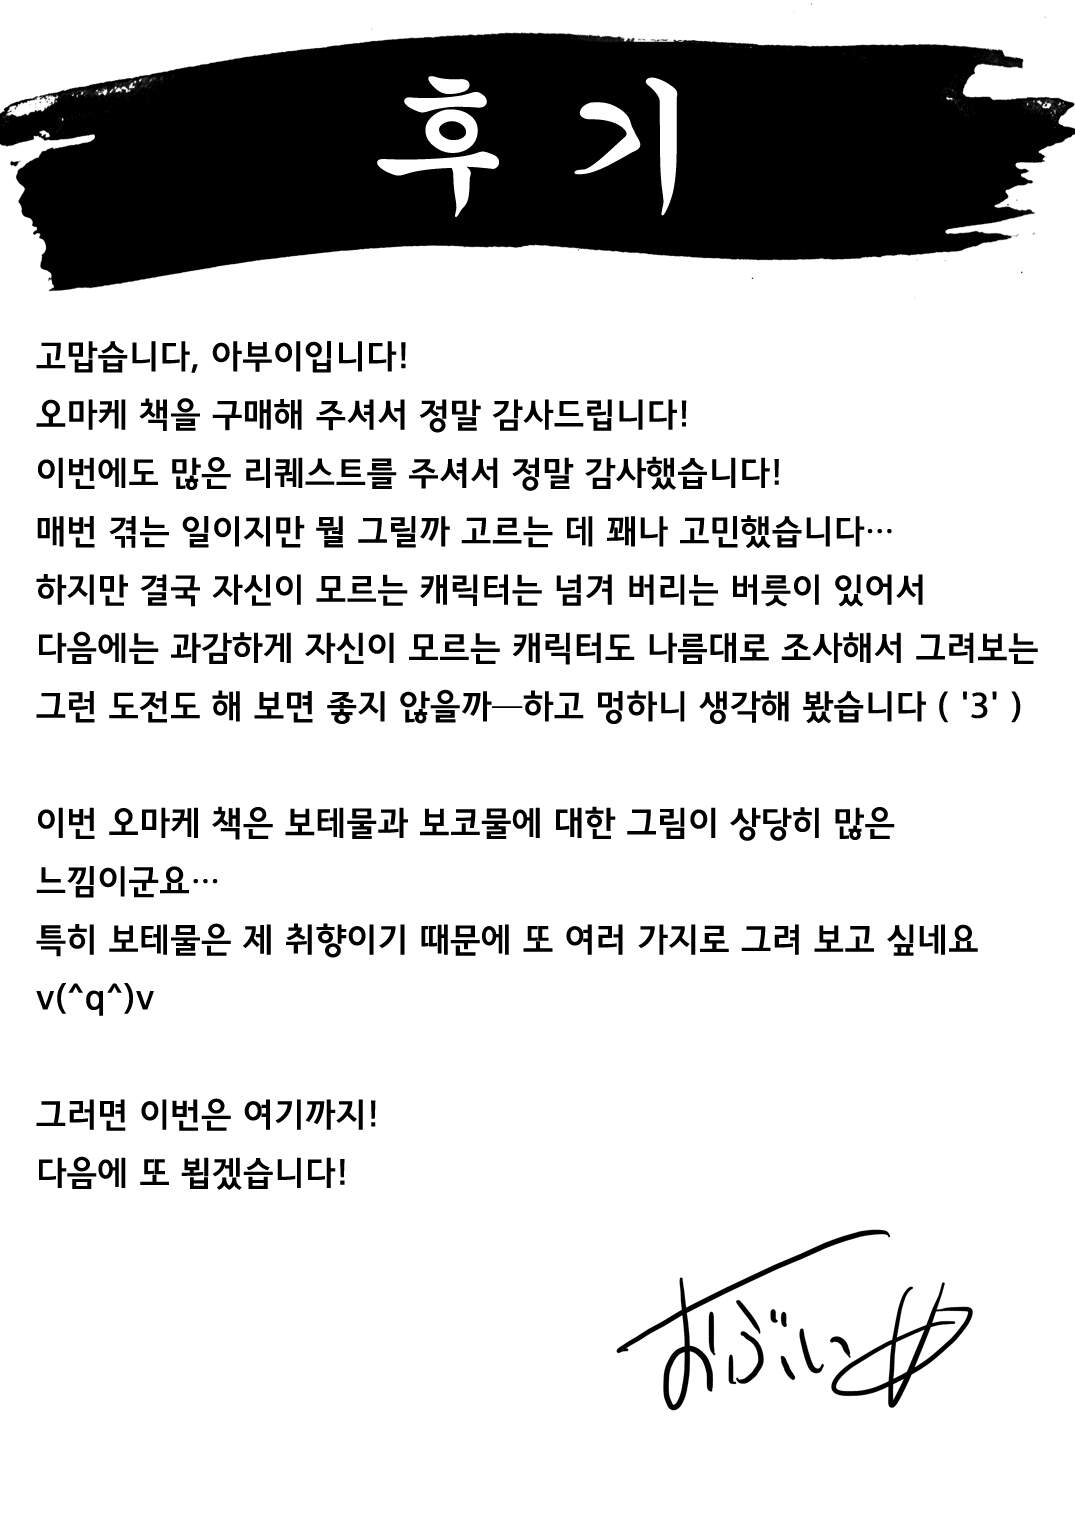 후기
고맙습니다, 아부이입니다!
오마케 책을 구매해 주셔서 정말 감사드립니다!
이번에도 많은 리퀘스트를 주셔서 정말 감사했습니다!
매번 겪는 일이지만 뭘 그릴까 고르는 데 꽤나 고민했습니다…
하지만 결국 자신이 모르는 캐릭터는 넘겨 버리는 버릇이 있어서
다음에는 과감하게 자신이 모르는 캐릭터도 나름대로 조사해서 그려보는
그런 도전도 해 보면 좋지 않을까─하고 멍하니 생각해 봤습니다 ( '3' )
이번 오마케 책은 보테물과 보코물에 대한 그림이 상당히 많은
느낌이군요…
특히 보테물은 제 취향이기 때문에 또 여러 가지로 그려 보고 싶네요
v(^q^)v
그러면 이번은 여기까지!
다음에 또 뵙겠습니다!
おぶい